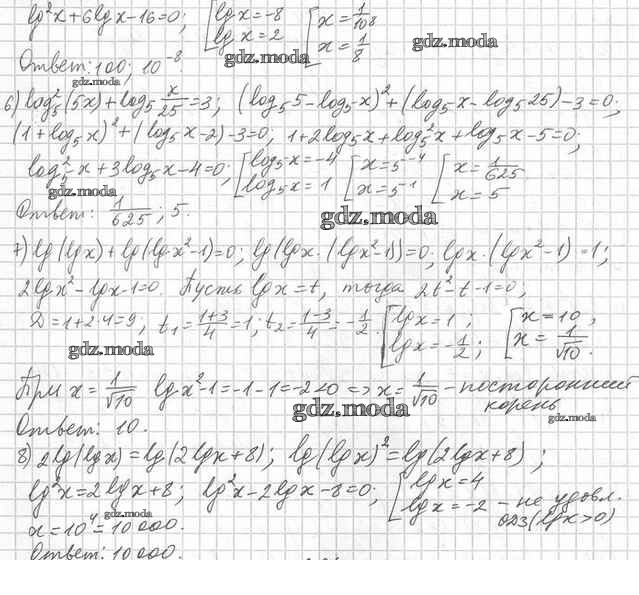 lg²x+6lgx-16=0; [lgx=-8 [x=1/10⁸
lgx=2 x=1/8
Ответ: 100; 10⁻⁸.
gdz.moda
gdz.moda
gdz.moda
6) log₅²(5x)+log₅ x/25=3; (log₅5-log₅x)²+(log₅x-log₅25)-3=0;
(1+log₅x)²+(log₅x-2)-3=0; 1+2log₅x+log₅²x+log₅x-5=0;
log₅²x+3log₅x-4=0; [log₅x=-4 [x=5⁻⁴ [x=1/625
log₅x=1 x=5⁻¹ x=5
gdz.moda
Ответ: 1/625; 5.
gdz.moda
7) lg(lgx)+lg(lgx²-1)=0; lg(lgx·(lgx²-1))=0; lgx·(lgx²-1)=1;
2lgx²-lgx-1=0. Пусть lgx=t, тогда 2t²-t-1=0;
D=1+2·4=9; t₁=(1+3)/4=1; t₂=(1-3)/4=-1/2. [lgx=1; [x=10;
lgx=-1/2; x=1/√10.
gdz.moda
При x=1/√10 lgx²-1=-1-1=-2<0 => x=1/√10 - посторонний
корень
gdz.moda
gdz.moda
Ответ: 10.
8) 2lg(lgx)=lg(2lgx+8); lg(lgx)²=lg(2lgx+8);
lg²x=2lgx+8; lg²x-2lgx-8=0; [lgx=4
lgx=-2 - не удовл.
ОДЗ(lgx>0)
gdz.moda
x=10⁴=10000.
Ответ: 10000.